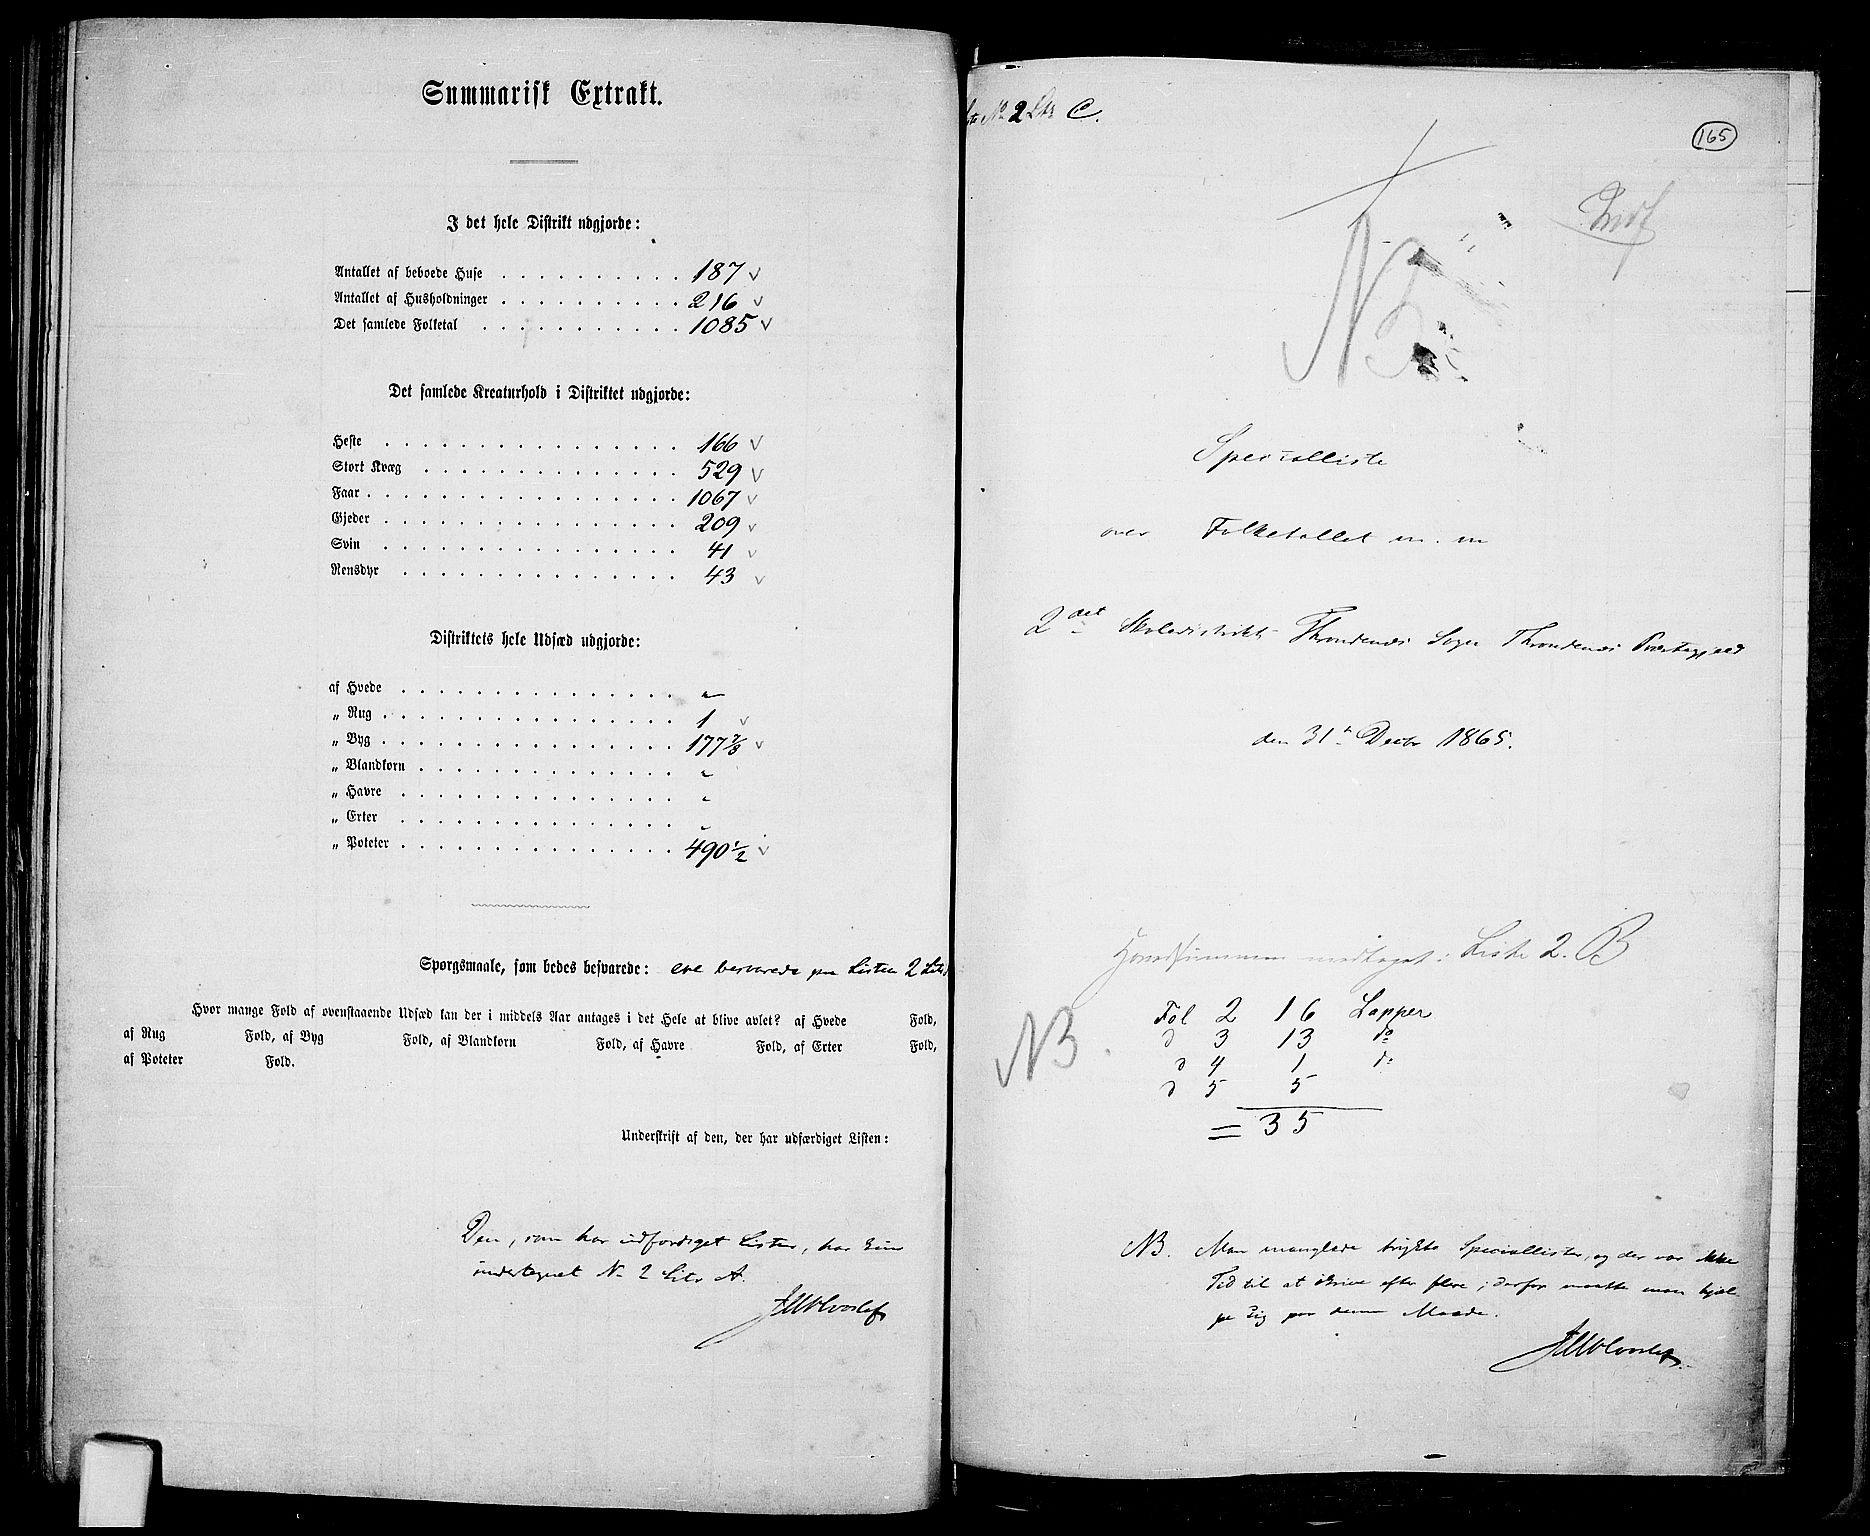 Summarisk Extrakt.
I det hele Distrikt udgjorde:
Antallet af beboede Huse . . . . . . . . . . 187 v
Antallet af Husholdninger . . . . . . . . . . 216 v
Det samlede Folketal . . . . . . . . . . . 1085 v
Det samlede Kreaturhold i Distriktet udgjorde:
Heste . . . . . . . . . . . . . . . . 166 v
Stort Kvæg . . . . . . . . . . . . . . 529 v
Faar . . . . . . . . . . . . . . . . . 1067 v
Gjeder . . . . . . . . . . . . . . . . 209 v
Svin . . . . . . . . . . . . . . . . 41 v
Rensdyr . . . . . . . . . . . . . . . 43 v
Distriktets hele Udsæd udgjorde:
af Hvede . . . . . . . . . . . . . . . "
„ Rug . . . . . . . . . . . . . . . . 1 v
„ Byg . . . . . . . . . . . . . . . . 177 7/8 v
„ Blandkorn . . . . . . . . . . . . . . "
„ Havre . . . . . . . . . . . . . . . "
„ Erter . . . . . . . . . . . . . . . "
„ Poteter . . . . . . . . . . . . . . . 490 1/2 v
Spørgsmaale, som bedes besvarede: ere besvarede paa Listen 2 Litr
Hvor mange Fold af ovenstaaende Udsæd kan der i middels Aar antages i det Hele at blive avlet? af Hvede Fold,
af Rug Fold, af Byg Fold, af Blandkorn Fold, af Havre Fold, af Erter Fold,
af Poteter Fold.
Underskrift af den, der har udfærdiget Listen:
Den, som har udfærdiget Listen, har kun
undertegnet No 2 Litr A.
No 2 Litr C.
165
NB
Specialliste
over Folketallet m. m
2det Skoledistrikt Throndenæs Sogn Throndenæs Præstegjeld
den 31te Decbr 1865.
medtaget i Liste 2. B
NB.
Fol 2 16 Lapper
d 3 13 do
d 4 1 do
d 5 5
= 35
NB. Man manglede trykte Speciallister, og der var ikke
Tid til at skrive efter flere; derfor maatte man hjæl-
pe sig paa denne Maade.